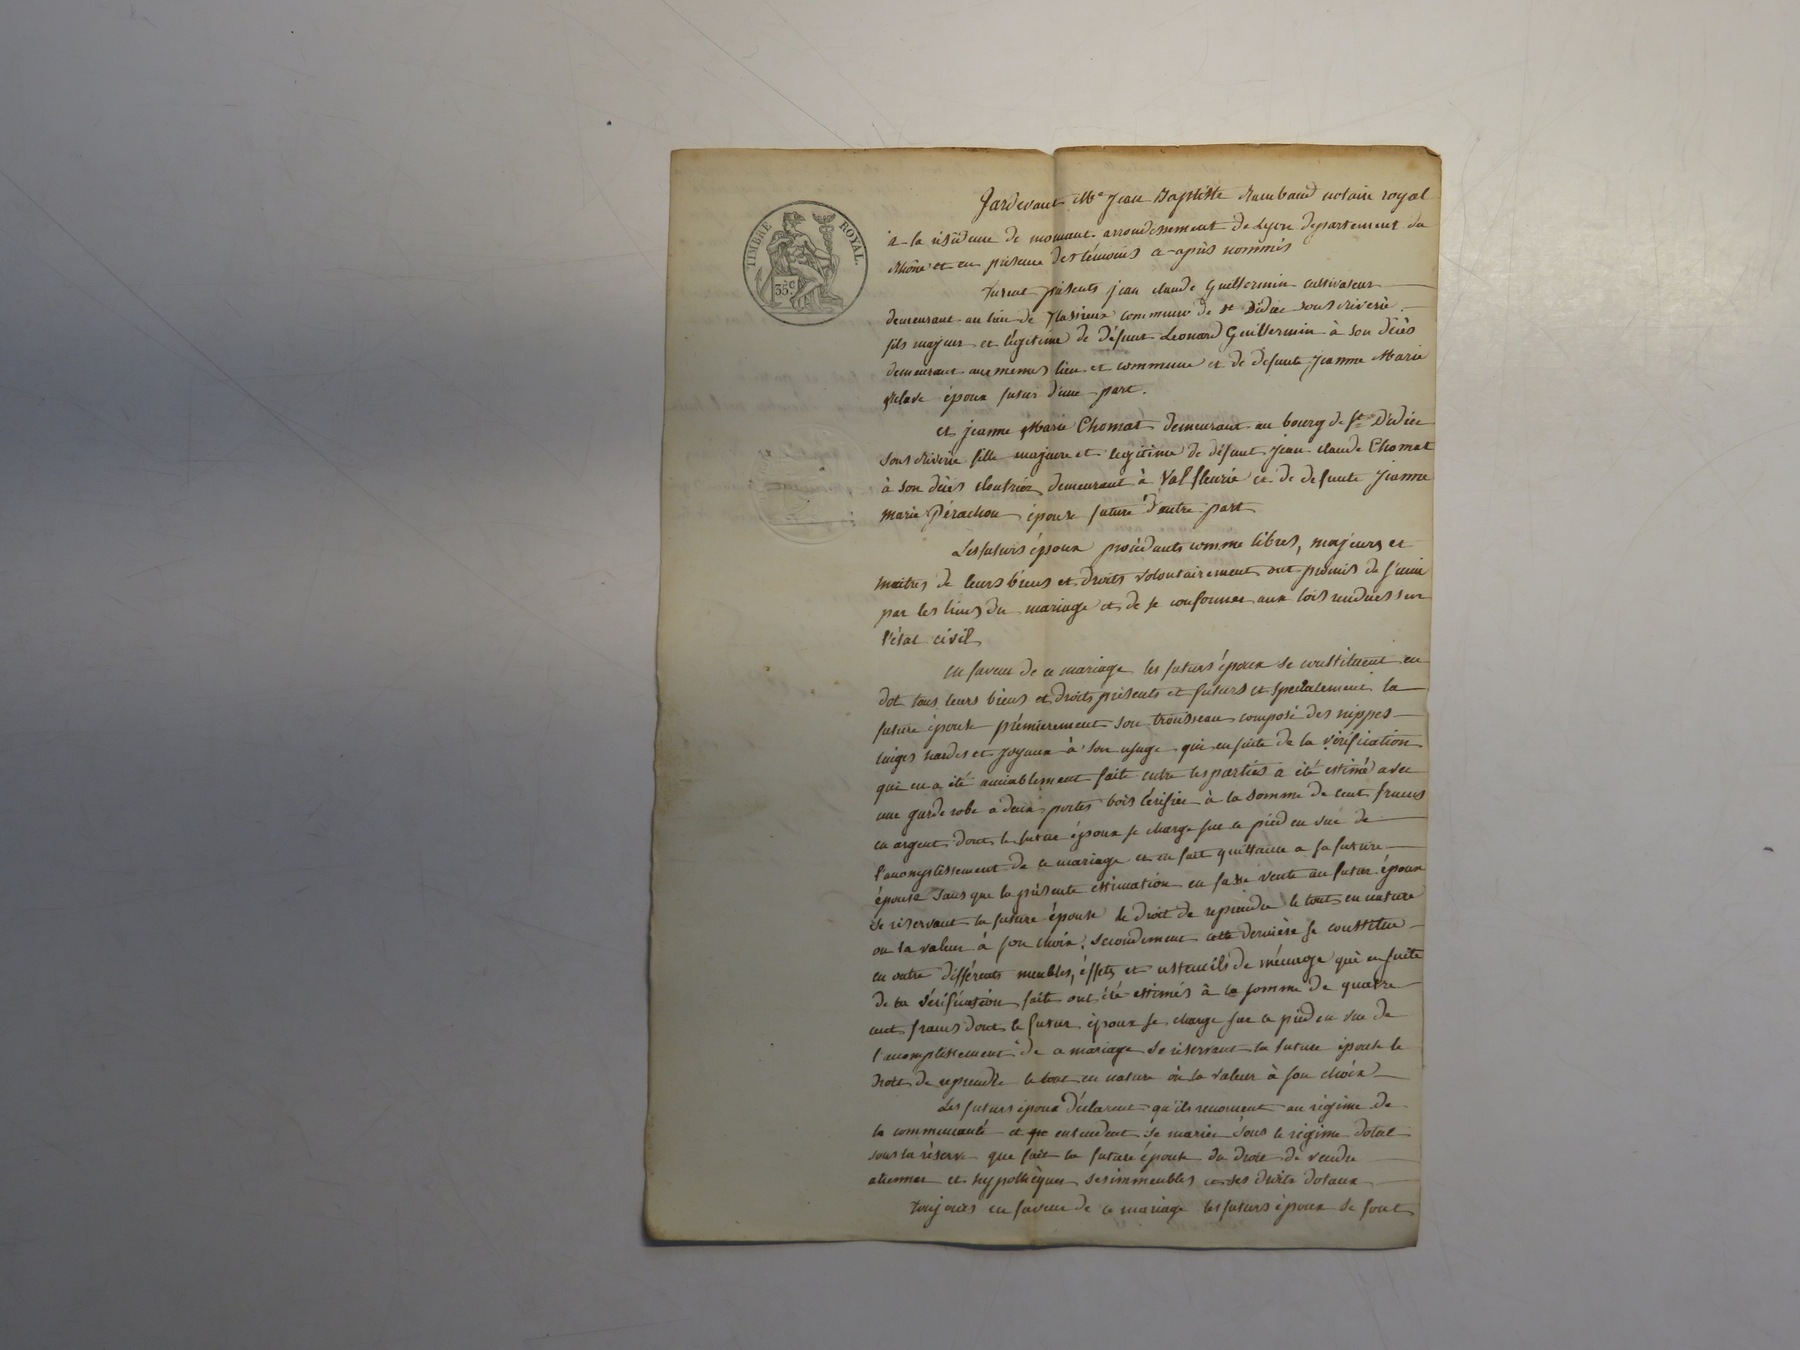 TIMBRE ROYAL.
35c
Pardevant Me Jean Baptiste Rambaud notaire royal
à la résidence de mornant arrondissement de Lyon departement du
Rhône et en présence des témoins ci-après nommés
furent présents jean claude Guillermin cultivateur
demeurant au lieu de commune de st Didier sous riverie
fils majeur et légitime de défunt Leonard Guillermin à son décès
demeurant aux memes lieu et commune et de defunte jeanne Marie
époux futur d'une part.
et jeanne Marie Chomat demeurant au bourg de St Didier
sous Riverie fille majeure et legitime de défunt jean claude Chomat
à son décès cloutrier demeurant à Valfleurie et de defunte jeanne
marie Pérachon épouse future d'autre part
Les futurs époux procédants comme libres, majeurs et
maitres de leurs biens et droits volontairement ont promis de s'unir
par les liens du mariage et de se conformer aux lois rendues sur
l'état civil
en faveur de ce mariage les futurs époux se constituent en
dot tous leurs biens et droits présents et futurs et specialement la
future épouse prémierement son trousseau composé des nippes
linges hardes et joyaux à son usage qui ensuite de la vérification
qui en a été amiablement faite entre les parties a été estimé avec
une garde robe a deux portes bois cérisier à la somme de cent francs
en argent dont le futur époux se charge sur ce pied en vue de
l'accomplissement de ce mariage et en fait quittance a sa future
épouse sans que la présente estimation en fasse vente au futur époux
se réservant la future épouse le droit de reprendre le tout en nature
ou la valeur à son choix. secondement cette dernière se constitue
en outre différents meubles, éffets et ustenciles de ménage qui ensuite
de la vérification faite ont été estimés à la somme de quatre
cent francs dont le futur époux se charge sur ce pied en vue de
l'accomplissement de ce mariage se réservant la future épouse le
droit de reprendre le tout en nature ou la valeur à son choix
Les futurs époux déclarent qu'ils renoncent au régime de
la communauté et entendent se marier sous le régime dotal
sous la réserve que fait la future épouse du droit de vendre
alienner et hypothéquer ses immeubles et ses droits dotaux
toujours en faveur de ce mariage les futurs époux se font